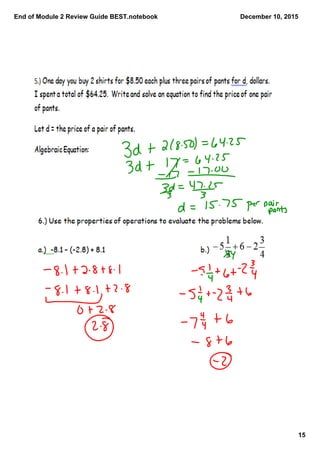 End of Module 2 Review Guide BEST.notebook
December 10, 2015
5.) One day you buy 2 shirts for $8.50 each plus three pairs of pants for d, dollars.
I spent a total of $64.25. Write and solve an equation to find the price of one pair
of pants.
Let d = the price of a pair of pants.
Algebraic Equation:
3d + 2(8.50) = 64.25
3d + 17 = 64.25
-17 -17.00
3d = 47.25
3 3
d = 15.75 per pair
pants
6.) Use the properties of operations to evaluate the problems below.
a.) -8.1 – (-2.8) + 8.1
b.) -5 1/4 + 6 - 2 3/4
-8.1 + 2.8 + 8.1
-8.1 + 8.1 + 2.8
0 + 2.8
2.8
-5 1/4 + 6 + -2 3/4
-5 1/4 + -2 3/4 + 6
-7 4/4 + 6
-8 + 6
-2
15